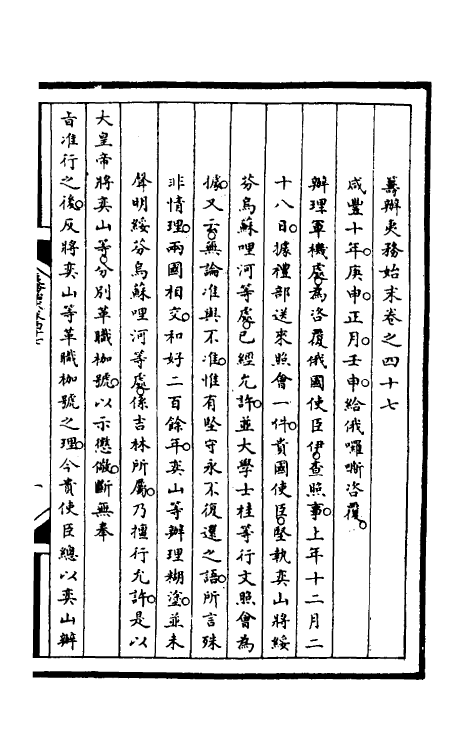 籌辦夷務始末卷之四十七
咸豐十年。庚申。正月。壬申。給俄囉嘶咨覆。
辦理軍機處。為咨覆俄國使臣伊。查照事。上年十二月二
十八日。據禮部送來照會一件。貴國使臣。堅執奕山將綏
芬烏蘇哩河等處。已經允許。並大學士桂等行文照會為
據。又云。無論准與不准。惟有堅守永不復還之語。所言殊
非情理。兩國相交。和好二百餘年。奕山等辦理糊塗。並未
聲明綏芬烏蘇哩河等處。係吉林所屬。乃擅行允許。是以
大皇帝將奕山等。分別革職枷號。以示懲儆。斷無奉
旨准行之後。反將奕山等革職枷號之理。今貴使臣總以奕山辦
一